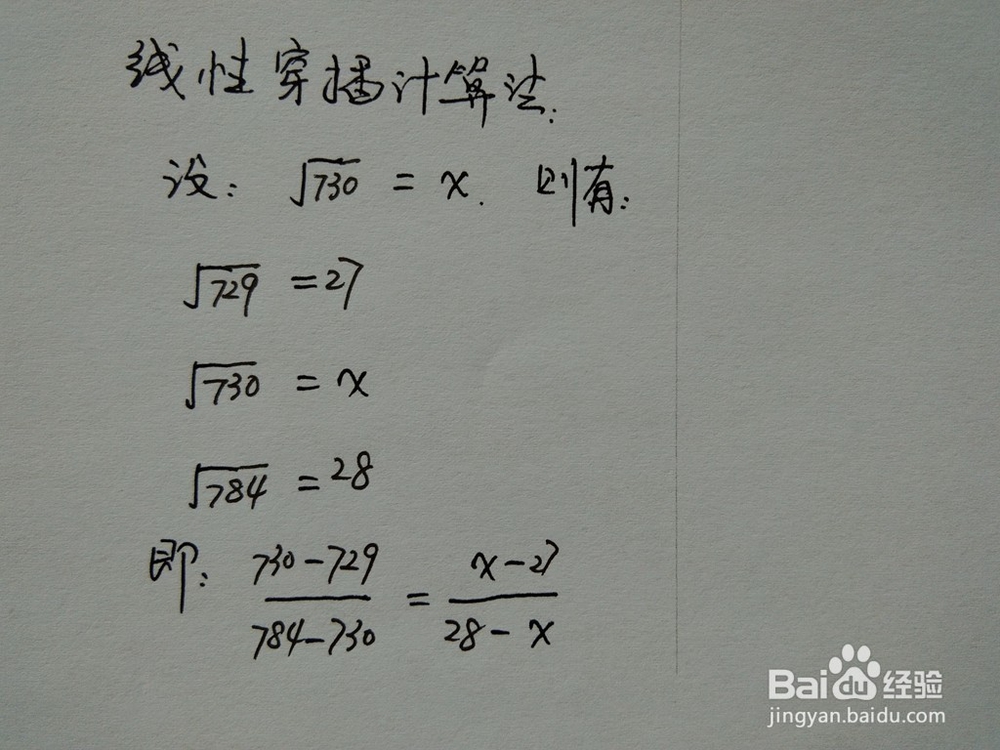 线性穿插计算法:
设: √730 = x. 则有:
√729 = 27
√730 = x
√784 = 28
即: (730-729)/(784-730) = (x-27)/(28-x)
Baidu经验
jingyan.baidu.com